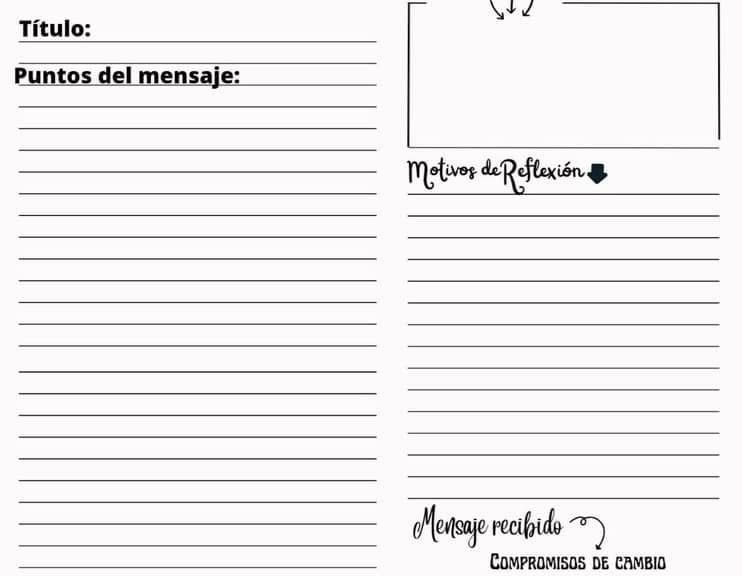 Título:
Puntos del mensaje:
Motivos de Reflexión
Mensaje recibido
COMPROMISOS DE CAMBIO